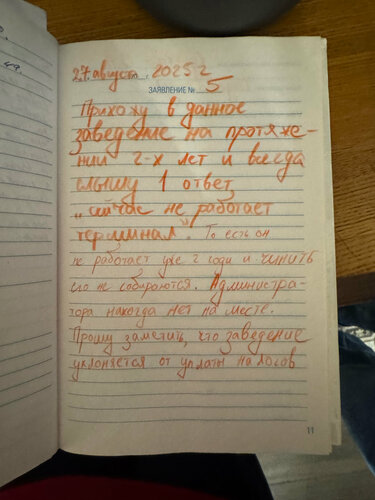 27. август 2025 г
ЗАЯВЛЕНИЕ № 5
Прихожу в данное
заведение на протяже-
нии 2-х лет и всегда
слышу 1 ответ
„сейчас не работает
терминал". То есть он
не работает уже 2 года и чинить
его не собираются. Администра-
тора никогда нет на месте.
Прошу заметить, что заведение
уклоняется от уплаты налогов
11